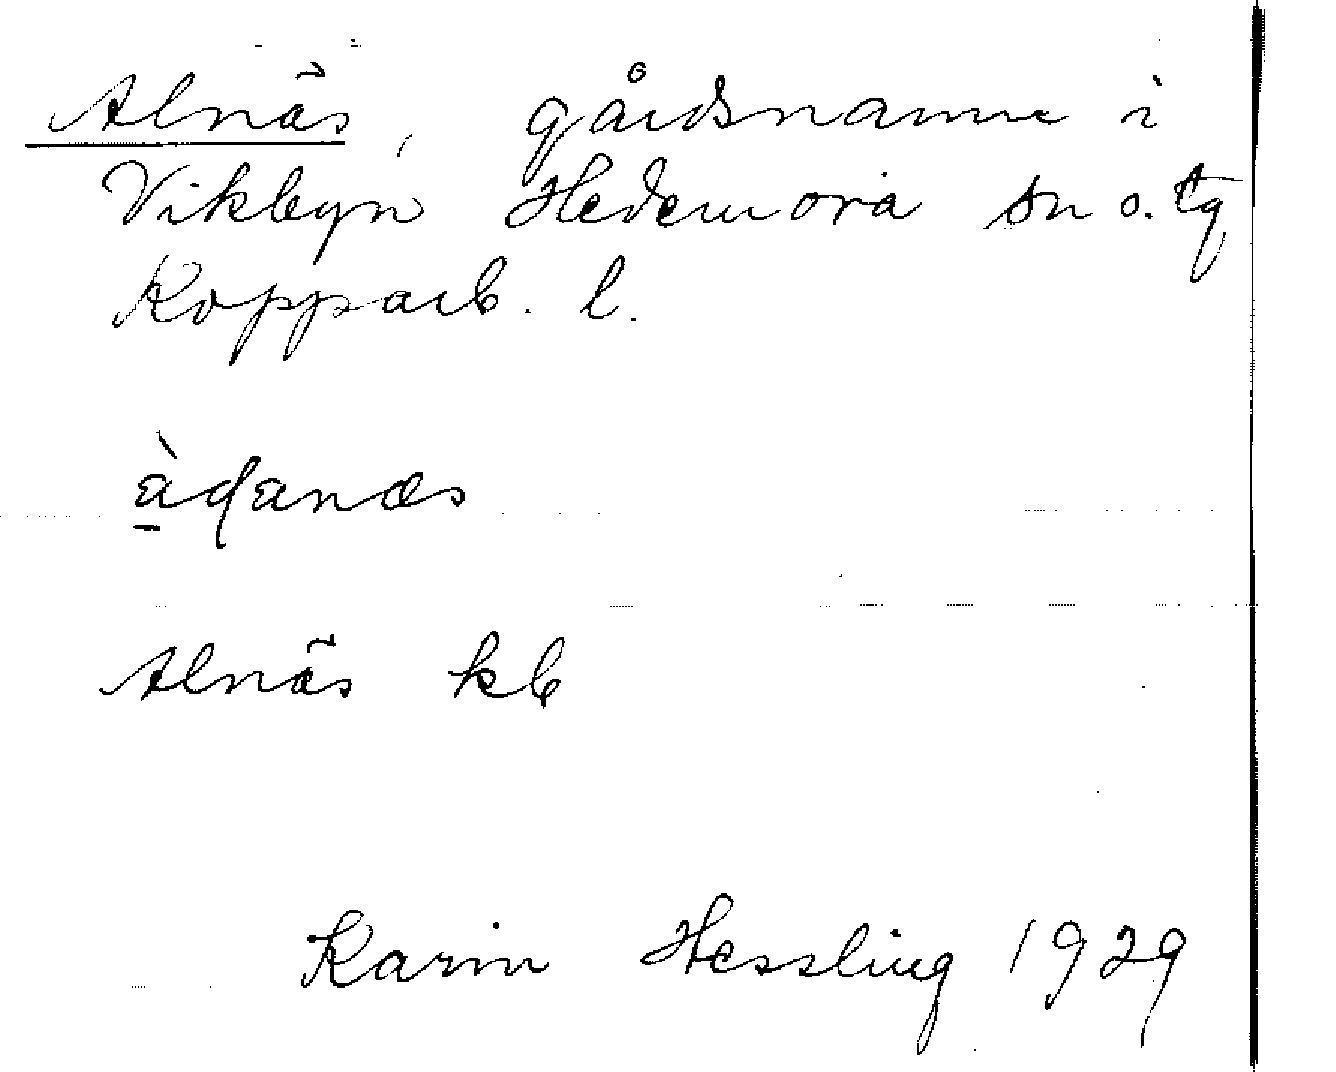 Alnäs, gårdsnamn i
Vikbyn Hedemora sn o. tg
Kopparb. l.
Alnäs kb
Karin Hessling 1929